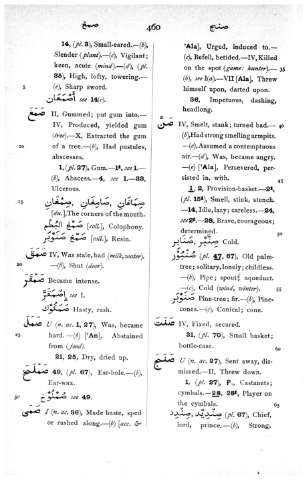 صمغ
460
صنج
14, (pl. 3), Small-eared.—(b),
Slender (plant).—(c), Vigilant;
keen, acute (mind).—(d), (pl.
35), High, lofty, towering.—
(e), Sharp sword.
أَصْمَعَانِ see 14(c).
صمغ II, Gummed; put gum into.—
IV, Produced, yielded gum
(tree).—X, Extracted the gum
of a tree.—(b), Had pustules,
abscesses.
1, (pl. 27), Gum.—1², see 1.—
(b), Abscess.—4, see 1.—33,
Ulcerous.
صِمَاغَانِ, صَامِغَانِ, صِمْغَانِ
[du.], The corners of the mouth.
صَمْغُ البُطْمِ [coll.], Colophony.
صَمْغُ صَنَوْبَرٍ [coll.], Rosin.
IV, Was stale, bad (milk, water).
—(b), Shut (door).
Became intense.
see I.
Hasty, rash.
صمل U (n. ac. 1, 27), Was, became
hard.—(b) ['An], Abstained
from (food).
21, 25, Dry, dried up.
49, (pl. 67), Ear-hole.—(b),
Ear-wax.
see 49.
صمى I (n. ac. 36), Made haste, sped
or rushed along.—(b) [acc. &
'Ala], Urged, induced to.—
(c), Befell, betided.—IV, Killed
on the spot (game: hunter).—
(b), see I(a).—VII [Ala], Threw
himself upon, darted upon.
36, Impetuous, dashing,
headlong.
صن IV, Smelt, stank; turned bad.—
(b), Had strong smelling armpits.
—(c), Assumed a contemptuous
air.—(d), Was, became angry.
—(e) ['Ala], Persevered, per-
sisted in, with.
1, 2, Provision-basket.—2²,
(pl. 15²), Smell, stink, stench.
—14, Idle, lazy; careless.—24,
see 2².—28, Brave, courageous;
determined.
Cold, صَنَابِر.
صُنْبُور (pl. 47, 67), Old palm-
tree; solitary, lonely; childless.
—(b), Pipe; spout; aqueduct.
—(c), Cold (wind, winter).
صَنَوْبَر Pine-tree; fir.—(b), Pine-
cones.—(c), Conical; cone.
صنت IV, Fixed, secured.
31, (pl. 70), Small basket;
bottle-case.
صنج U (n. ac. 27), Sent away, dis-
missed.—II, Threw down.
1, (pl. 27), P., Castanets;
cymbals.—28, 28², Player on
the cymbals.
صِنْدِيد, صِنْدِد (pl. 67), Chief,
lord, prince.—(b), Strong,